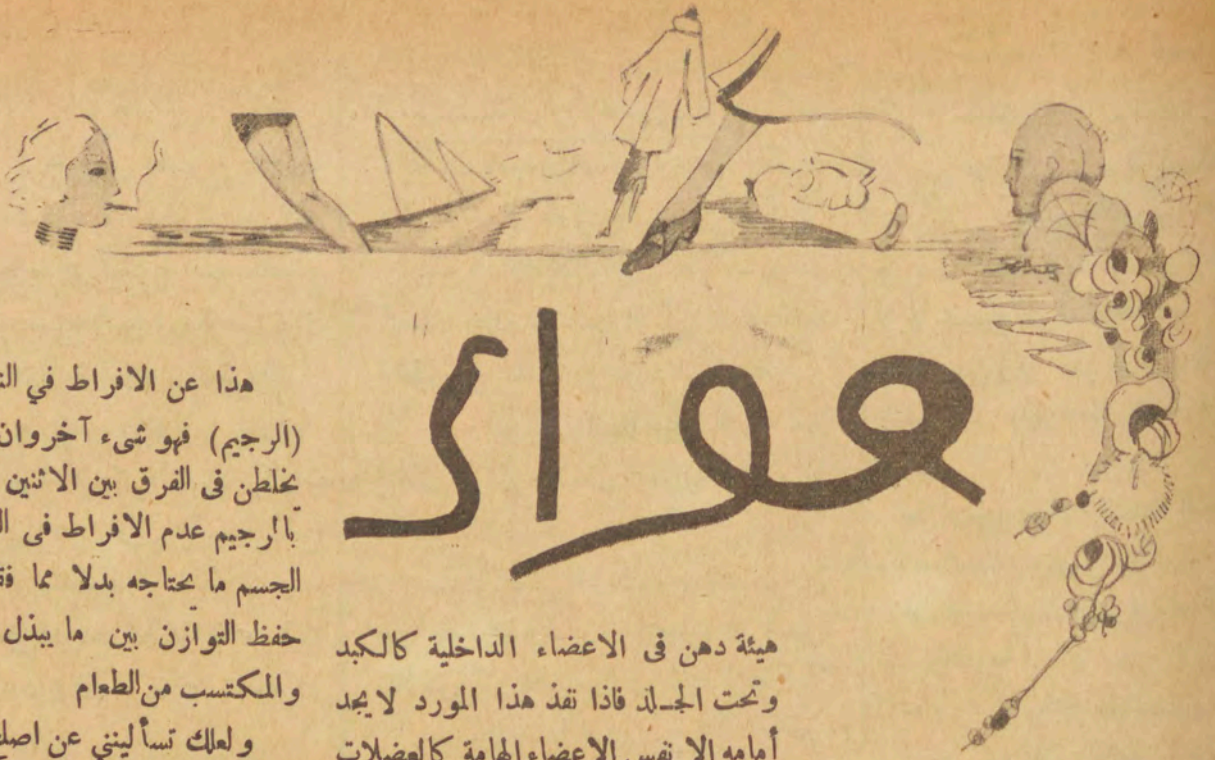 هيئة دهن فى الاعضاء الداخلية كالكبد
وتحت الجلد فاذا نفذ هذا المورد لا يجد
أمامه الا نفس الاعضاء الهامة كالعضلات
هذا عن الافراط في
(الرجيم) فهو شىء آخر وان
يخلطن فى الفرق بين الاثنين
بالرجيم عدم الافراط فى
الجسم ما يحتاجه بدلا مما
حفظ التوازن بين ما يبذل
والمكتسب من الطعام
ولعلك تسألينني عن